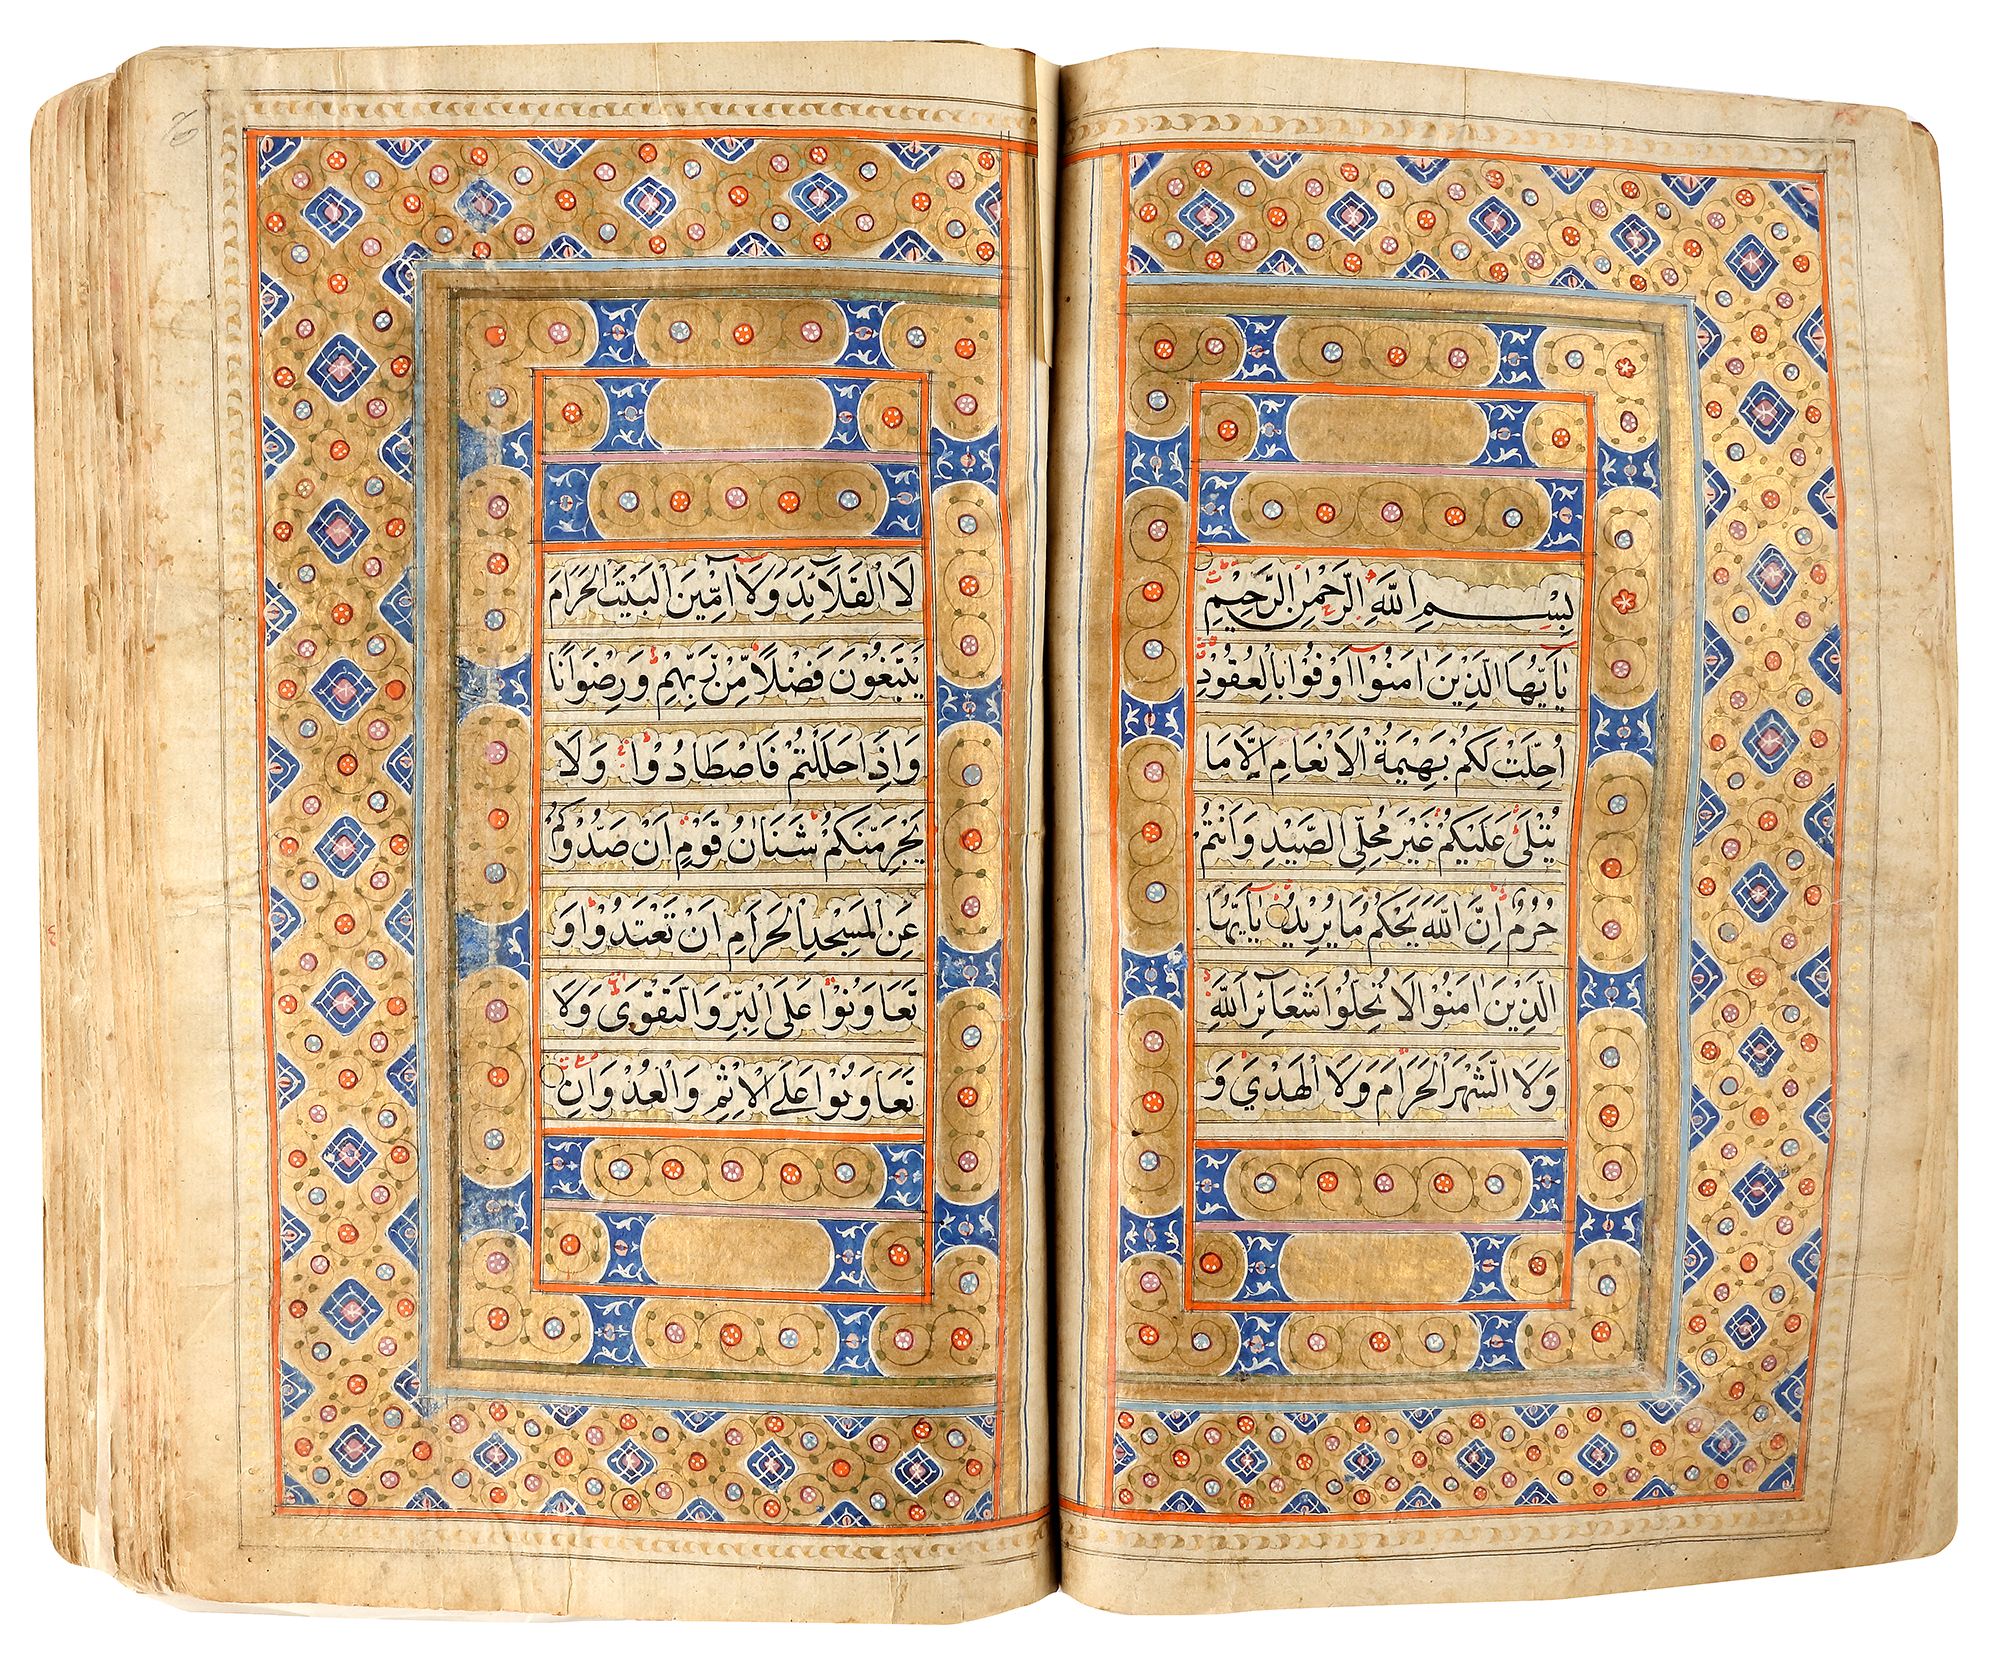 بِسْمِ اللّٰهِ الرَّحْمٰنِ الرَّحِيْمِ
يٰاَيُّهَا الَّذِيْنَ اٰمَنُوْٓا اَوْفُوْا بِالْعُقُوْدِ
اُحِلَّتْ لَكُمْ بَهِيْمَةُ الْاَنْعَامِ اِلَّا مَا
يُتْلٰى عَلَيْكُمْ غَيْرَ مُحِلِّي الصَّيْدِ وَاَنْتُمْ
حُرُمٌ اِنَّ اللّٰهَ يَحْكُمُ مَا يُرِيْدُ يٰاَيُّهَا
الَّذِيْنَ اٰمَنُوْا لَا تُحِلُّوْا شَعَآئِرَ اللّٰهِ
وَلَا الشَّهْرَ الْحَرَامَ وَلَا الْهَدْيَ وَ
لَا الْقَلَآئِدَ وَلَآ اٰمِّيْنَ الْبَيْتَ الْحَرَامَ
يَبْتَغُوْنَ فَضْلًا مِّنْ رَّبِّهِمْ وَرِضْوَانًا
وَاِذَا حَلَلْتُمْ فَاصْطَادُوْا وَلَا
يَجْرِمَنَّكُمْ شَنَاٰنُ قَوْمٍ اَنْ صَدُّوْكُمْ
عَنِ الْمَسْجِدِ الْحَرَامِ اَنْ تَعْتَدُوْا وَ
تَعَاوَنُوْا عَلَى الْبِرِّ وَالتَّقْوٰى وَلَا
تَعَاوَنُوْا عَلَى الْاِثْمِ وَالْعُدْوَانِ